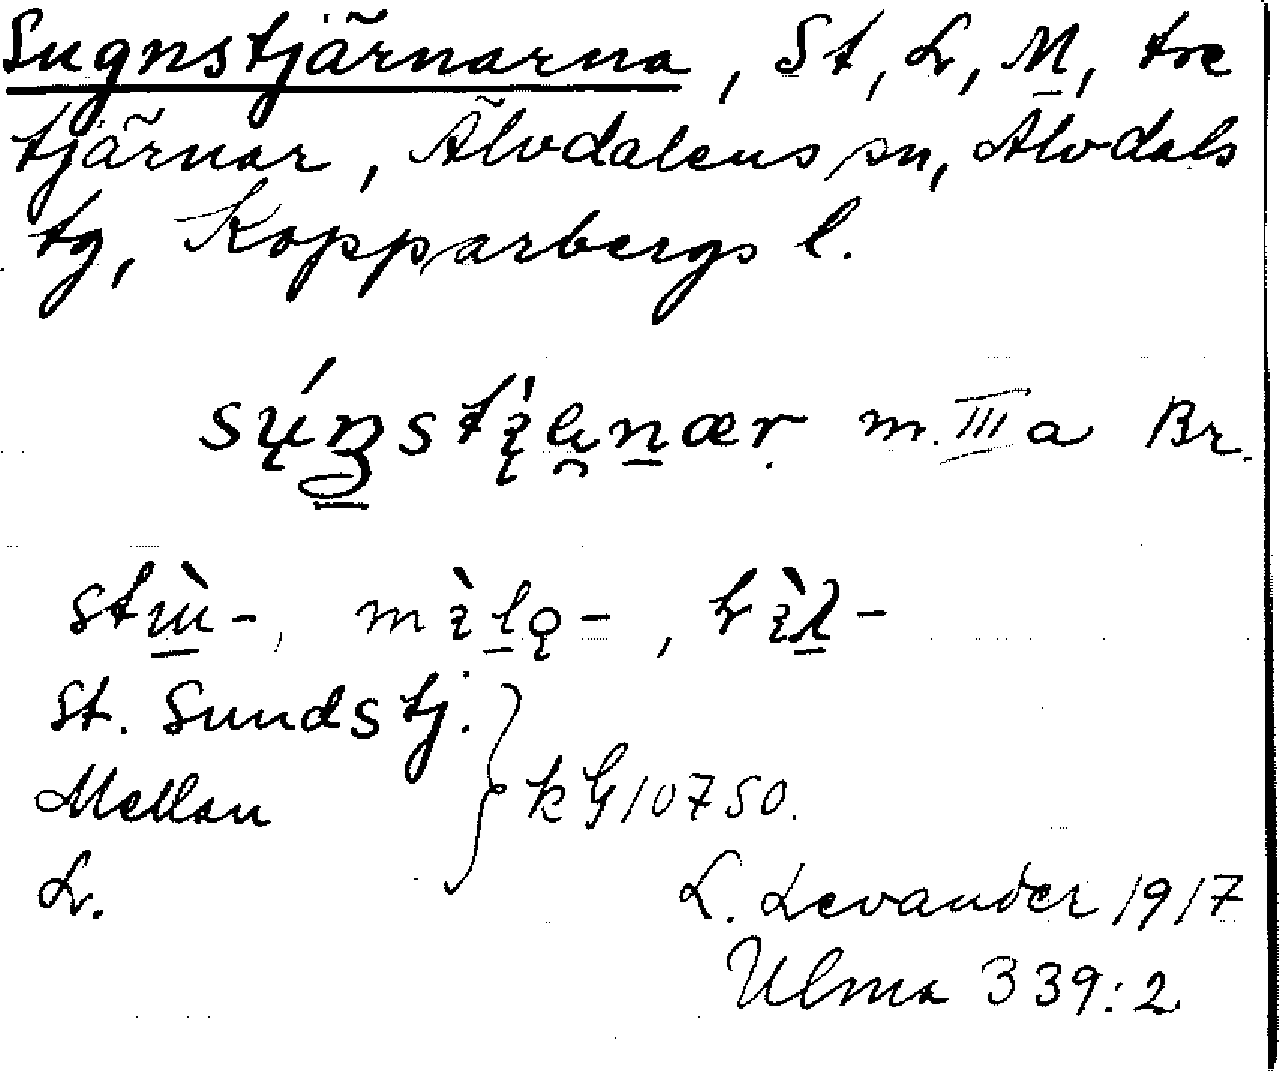 Sugnstjärnarna, St, L, M, tre
tjärnar, Älvdalens sn, Älvdals
tg, Kopparbergs l.
m. III a Br.
St. Sundstj.
Mellan
L.
} kG 10750.
L. Levander 1917
Ulma 339:2